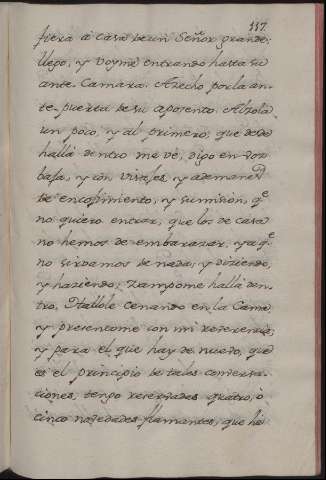 117
fuera á Casa de un Señor grande;
llego, y voyme entrando hasta su
ante-Camara: Azecho por la an-
te-puerta de su aposento. Alzola
un poco, y al primero, que desde
hallà dentro me vé, digo en voz
baja, y con visajes, y ademanes
de encojimiento, y sumision, q.e
no quiero entrar, que los de casa
no hemos de embarazar, ya q.e
no sirvamos de nada; y diziendo,
y haziendo; Zampome hallà den-
tro. Hallole cenando en la Cama,
y presentome con mi reverencia;
y para el que hay de nuevo, que
es el principio de tales conversa-
ciones, tengo reservadas quatro, ò
cinco novedades flamantes, que hè